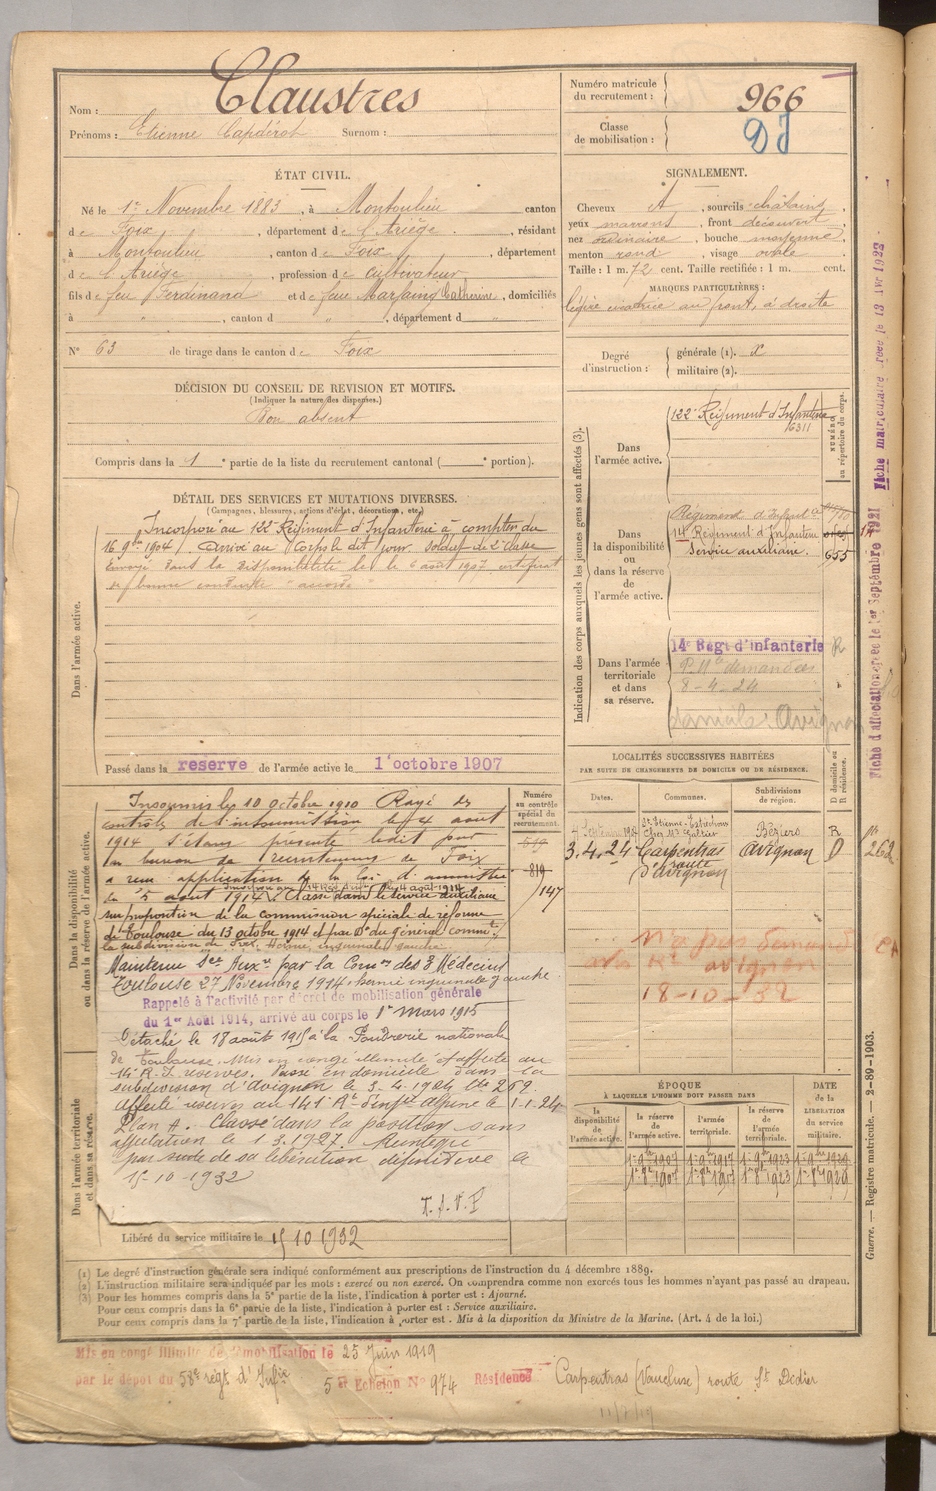 Nom : Claustres
Prénoms : Etienne Capdérot Surnom :
Numéro matricule du recrutement : 966
Classe de mobilisation : DJ
ÉTAT CIVIL.
Né le 1er Novembre 1883, à Montoulieu canton
de Foix, département de l'Ariège, résidant
à Montoulieu, canton de Foix, département
de l'Ariège, profession de cultivateur
fils de feu Ferdinand et de feue Marfaing Catherine, domiciliés
à " , canton d " , département d "
N° 63 de tirage dans le canton de Foix
SIGNALEMENT.
Cheveux et, sourcils châtains
yeux marrons, front découvert
nez ordinaire, bouche moyenne,
menton rond, visage ovale
Taille : 1 m. 72 cent. Taille rectifiée : 1 m. cent.
MARQUES PARTICULIÈRES :
légère cicatrice au front, à droite
Degré d'instruction : générale (1). x
militaire (2).
DÉCISION DU CONSEIL DE REVISION ET MOTIFS.
(Indiquer la nature des dispenses.)
Bon absent
Compris dans la 1e partie de la liste du recrutement cantonal ( e portion).
DÉTAIL DES SERVICES ET MUTATIONS DIVERSES.
(Campagnes, blessures, actions d'éclat, décorations, etc.)
Dans l'armée active.
Incorporé au 122e Régiment d'Infanterie à compter du
16 9bre 1904. Arrivé au Corps le dit jour. soldat de 2e classe
Envoyé dans la disponibilité le 6 août 1907 certificat
de bonne conduite "accordé"
Passé dans la réserve de l'armée active le 1er octobre 1907
Indication des corps auxquels les jeunes gens sont affectés (3).
NUMÉRO au répertoire du corps.
Dans l'armée active.
122e Régiment d'Infanterie
6311
Dans la disponibilité ou dans la réserve de l'armée active.
Régiment d'Infanterie
14e Régiment d'Infanterie
Service auxiliaire.
655
Dans l'armée territoriale et dans sa réserve.
14e Régt d'Infanterie R
demandées
8-4-24
Avignon
LOCALITÉS SUCCESSIVES HABITÉES
PAR SUITE DE CHANGEMENTS DE DOMICILE OU DE RÉSIDENCE.
Dates. Communes. Subdivisions de région. D domicile ou R résidence.
Chez Mr Galtier Béziers R
3.4.24 Carpentras Avignon D 262
route
d'Avignon
n'a pas demandé
18-10-32
Dans la disponibilité ou dans la réserve de l'armée active.
Numéro au contrôle spécial du recrutement.
819
147
Insoumis le 10 octobre 1910 Rayé des
contrôles de l'insoumission le 4 août
1914 s'étant présenté ledit jour
au bureau de recrutement de Foix
a reçu application de la loi d'amnistie
du 5 août 1914. Classé dans le service auxiliaire
sur proposition de la commission spéciale de réforme
de Toulouse du 13 octobre 1914 et par Don du Général commt
la subdivision de Foix. Hernie inguinale gauche
Maintenu Sce Auxre par la Comon des 3 Médecins
Toulouse 27 Novembre 1914 hernie inguinale gauche
Rappelé à l'activité par décret de mobilisation générale
du 1er Août 1914, arrivé au corps le 1er Mars 1915
Détaché le 18 août 1915 à la Poudrerie nationale
de Toulouse. Mis en congé illimité et affecté au
14e R.I. réserves. Passé en domicile dans la
subdivision d'Avignon le 3-4-1924 Lte 262.
Affecté réserves au 141e Rt d'Infie alpine le 1-1-24
Plan A. Classé dans la position sans
affectation le 1.3.1927. Réintégré
par suite de sa libération définitive le
15-10-1932
Dans l'armée territoriale et dans sa réserve.
Libéré du service militaire le 15 10 1932
ÉPOQUE
À LAQUELLE L'HOMME DOIT PASSER DANS
la disponibilité de l'armée active. la réserve de l'armée active. l'armée territoriale. la réserve de l'armée territoriale. DATE de la LIBÉRATION du service militaire.
1er 8bre 1907 1er 8bre 1923
(1) Le degré d'instruction générale sera indiqué conformément aux prescriptions de l'instruction du 4 décembre 1889.
(2) L'instruction militaire sera indiquée par les mots : exercé ou non exercé. On comprendra comme non exercés tous les hommes n'ayant pas passé au drapeau.
(3) Pour les hommes compris dans la 5e partie de la liste, l'indication à porter est : Ajourné.
Pour ceux compris dans la 6e partie de la liste, l'indication à porter est : Service auxiliaire.
Pour ceux compris dans la 7e partie de la liste, l'indication à porter est : Mis à la disposition du Ministre de la Marine. (Art. 4 de la loi.)
Mis en congé illimité de démobilisation le 25 Juin 1919
par le dépôt du 58e régt d'Infie 5e Echelon N° 974 Résidence Carpentras (Vaucluse) route St Didier
Fiche d'affectation créée le 1er Septembre 1921
Fiche matriculaire créée le 13 Avr 1922
Guerre. — Registre matricule. — 2-89-1903.